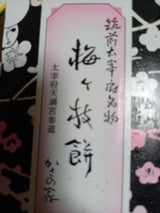 筑前太宰府名物
梅ヶ枝餅
太宰府天満宮参道
かさの家